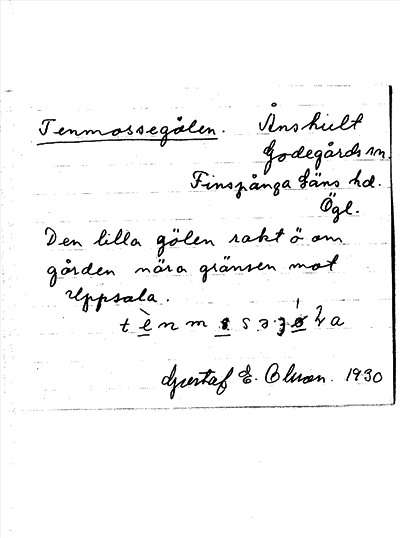 Tenmossegölen. Ånshult
Godegårds sn.
Finspånga läns hd.
Ögl.
Den lilla gölen rakt ö om
gården nära gränsen mot
Uppsala.
Gustaf E. Olsson. 1930